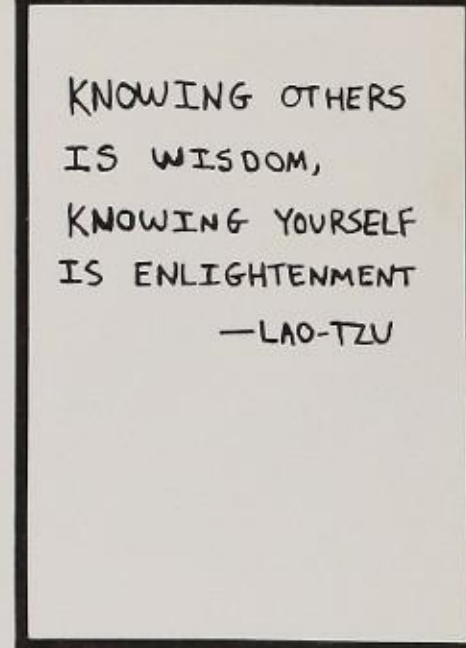 KNOWING OTHERS
IS WISDOM,
KNOWING YOURSELF
IS ENLIGHTENMENT
—LAO-TZU